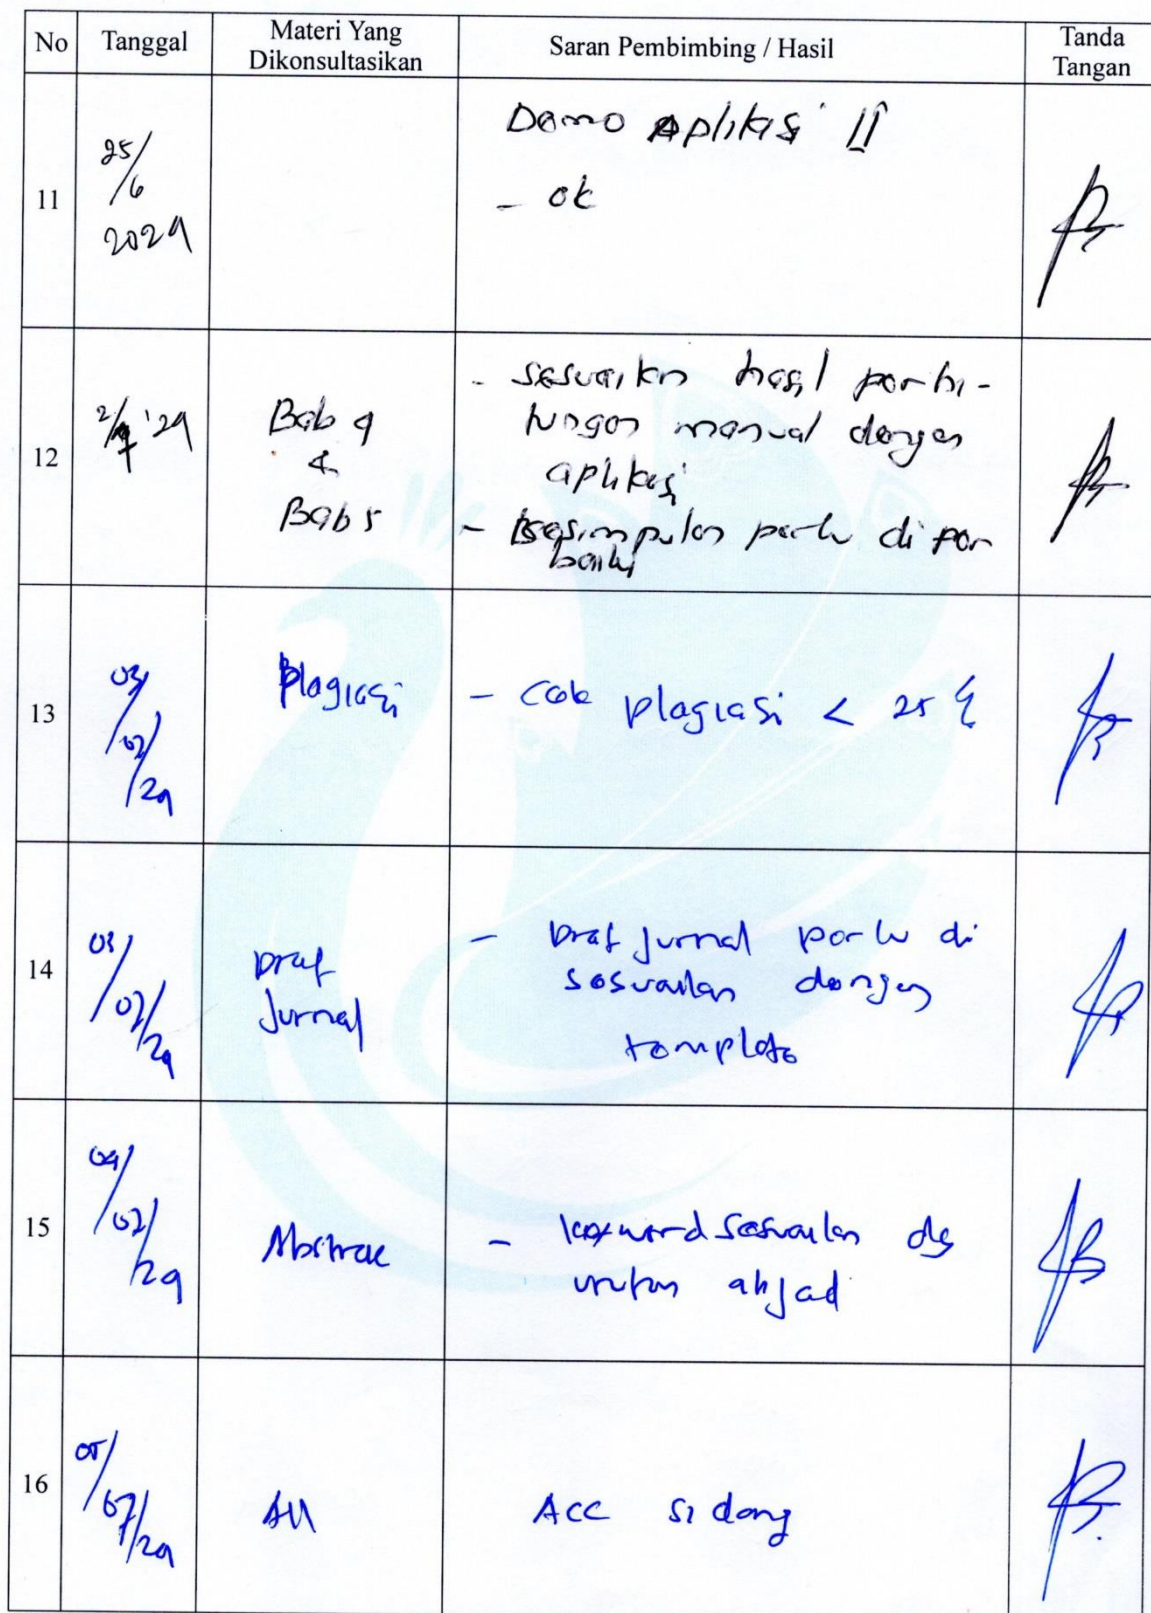 No Tanggal Materi Yang Dikonsultasikan Saran Pembimbing / Hasil Tanda Tangan
11 25/6 2024 Demo Aplikasi II
- ok
12 2/7 '24 Bab 4 & Bab 5 - sesuaikn hasil perhi-
tungan manual dengan
aplikasi
- kesimpulan perlu diper
baiki
13 03/07/24 Plagiasi - Cek plagiasi < 25 %
14 03/07/24 Draf Jurnal - Draf jurnal perlu di
sesuaikan dengan
template
15 04/07/24 Abstrak - keyword sesuaikan dg
urutan abjad
16 05/07/24 All ACC sidang